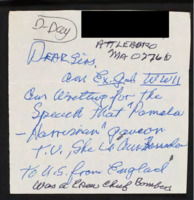 D-Day
ATTLEBORO
MA 02760
DEAR Sirs,
Am Ex Gob WWII
Am Writting for the
Speech that "Pamela
Harriman" gave on
T.V, She is Our
to U.S. from England"
Was a Crew Chief Bombers